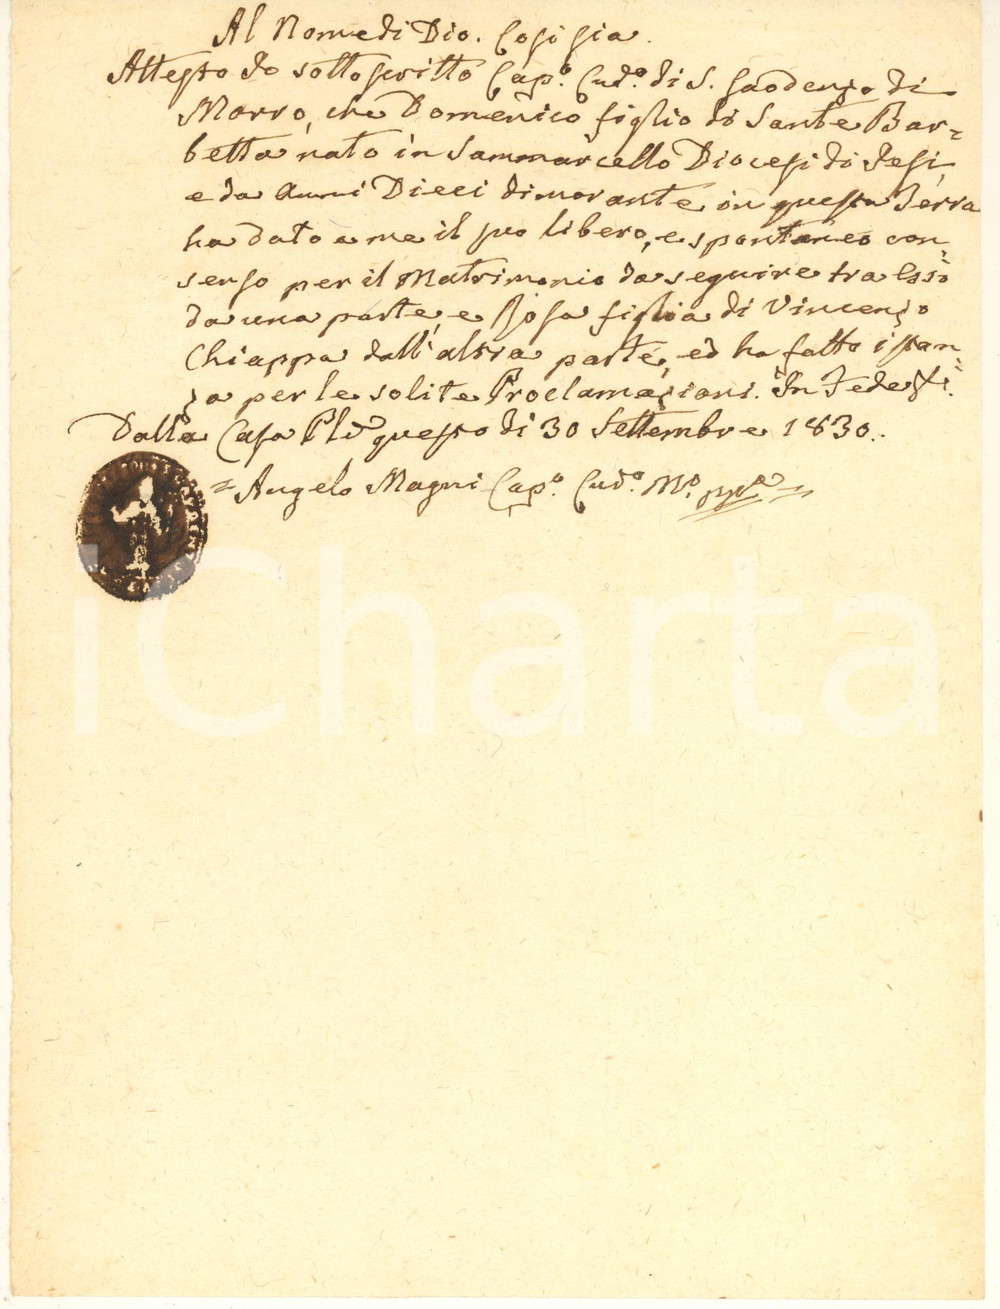 Al Nome di Dio. Cosi sia.
Attesto Io sottoscritto Cap.º Cud.º di S. Gaodenzo di
Morro, che Domenico figlio di Sante Bar=
betta nato in Sammarcello Diocesi di Jesi,
e da Anni Dieci dimorante in questa Terra
ha dato a me il suo libero, e spontaneo con=
senso per il Matrimonio da seguire tra Esso
da una parte, e Rosa figlia di Vincenzo
Chiappa dall'altra parte, ed ha fatto istan=
za per le solite Proclamazioni. In Fede &.
Dalla Casa Plē questo di 30 Settembre 1830.
= Angelo Magni Cap.º Cud.º M.º
iCharta